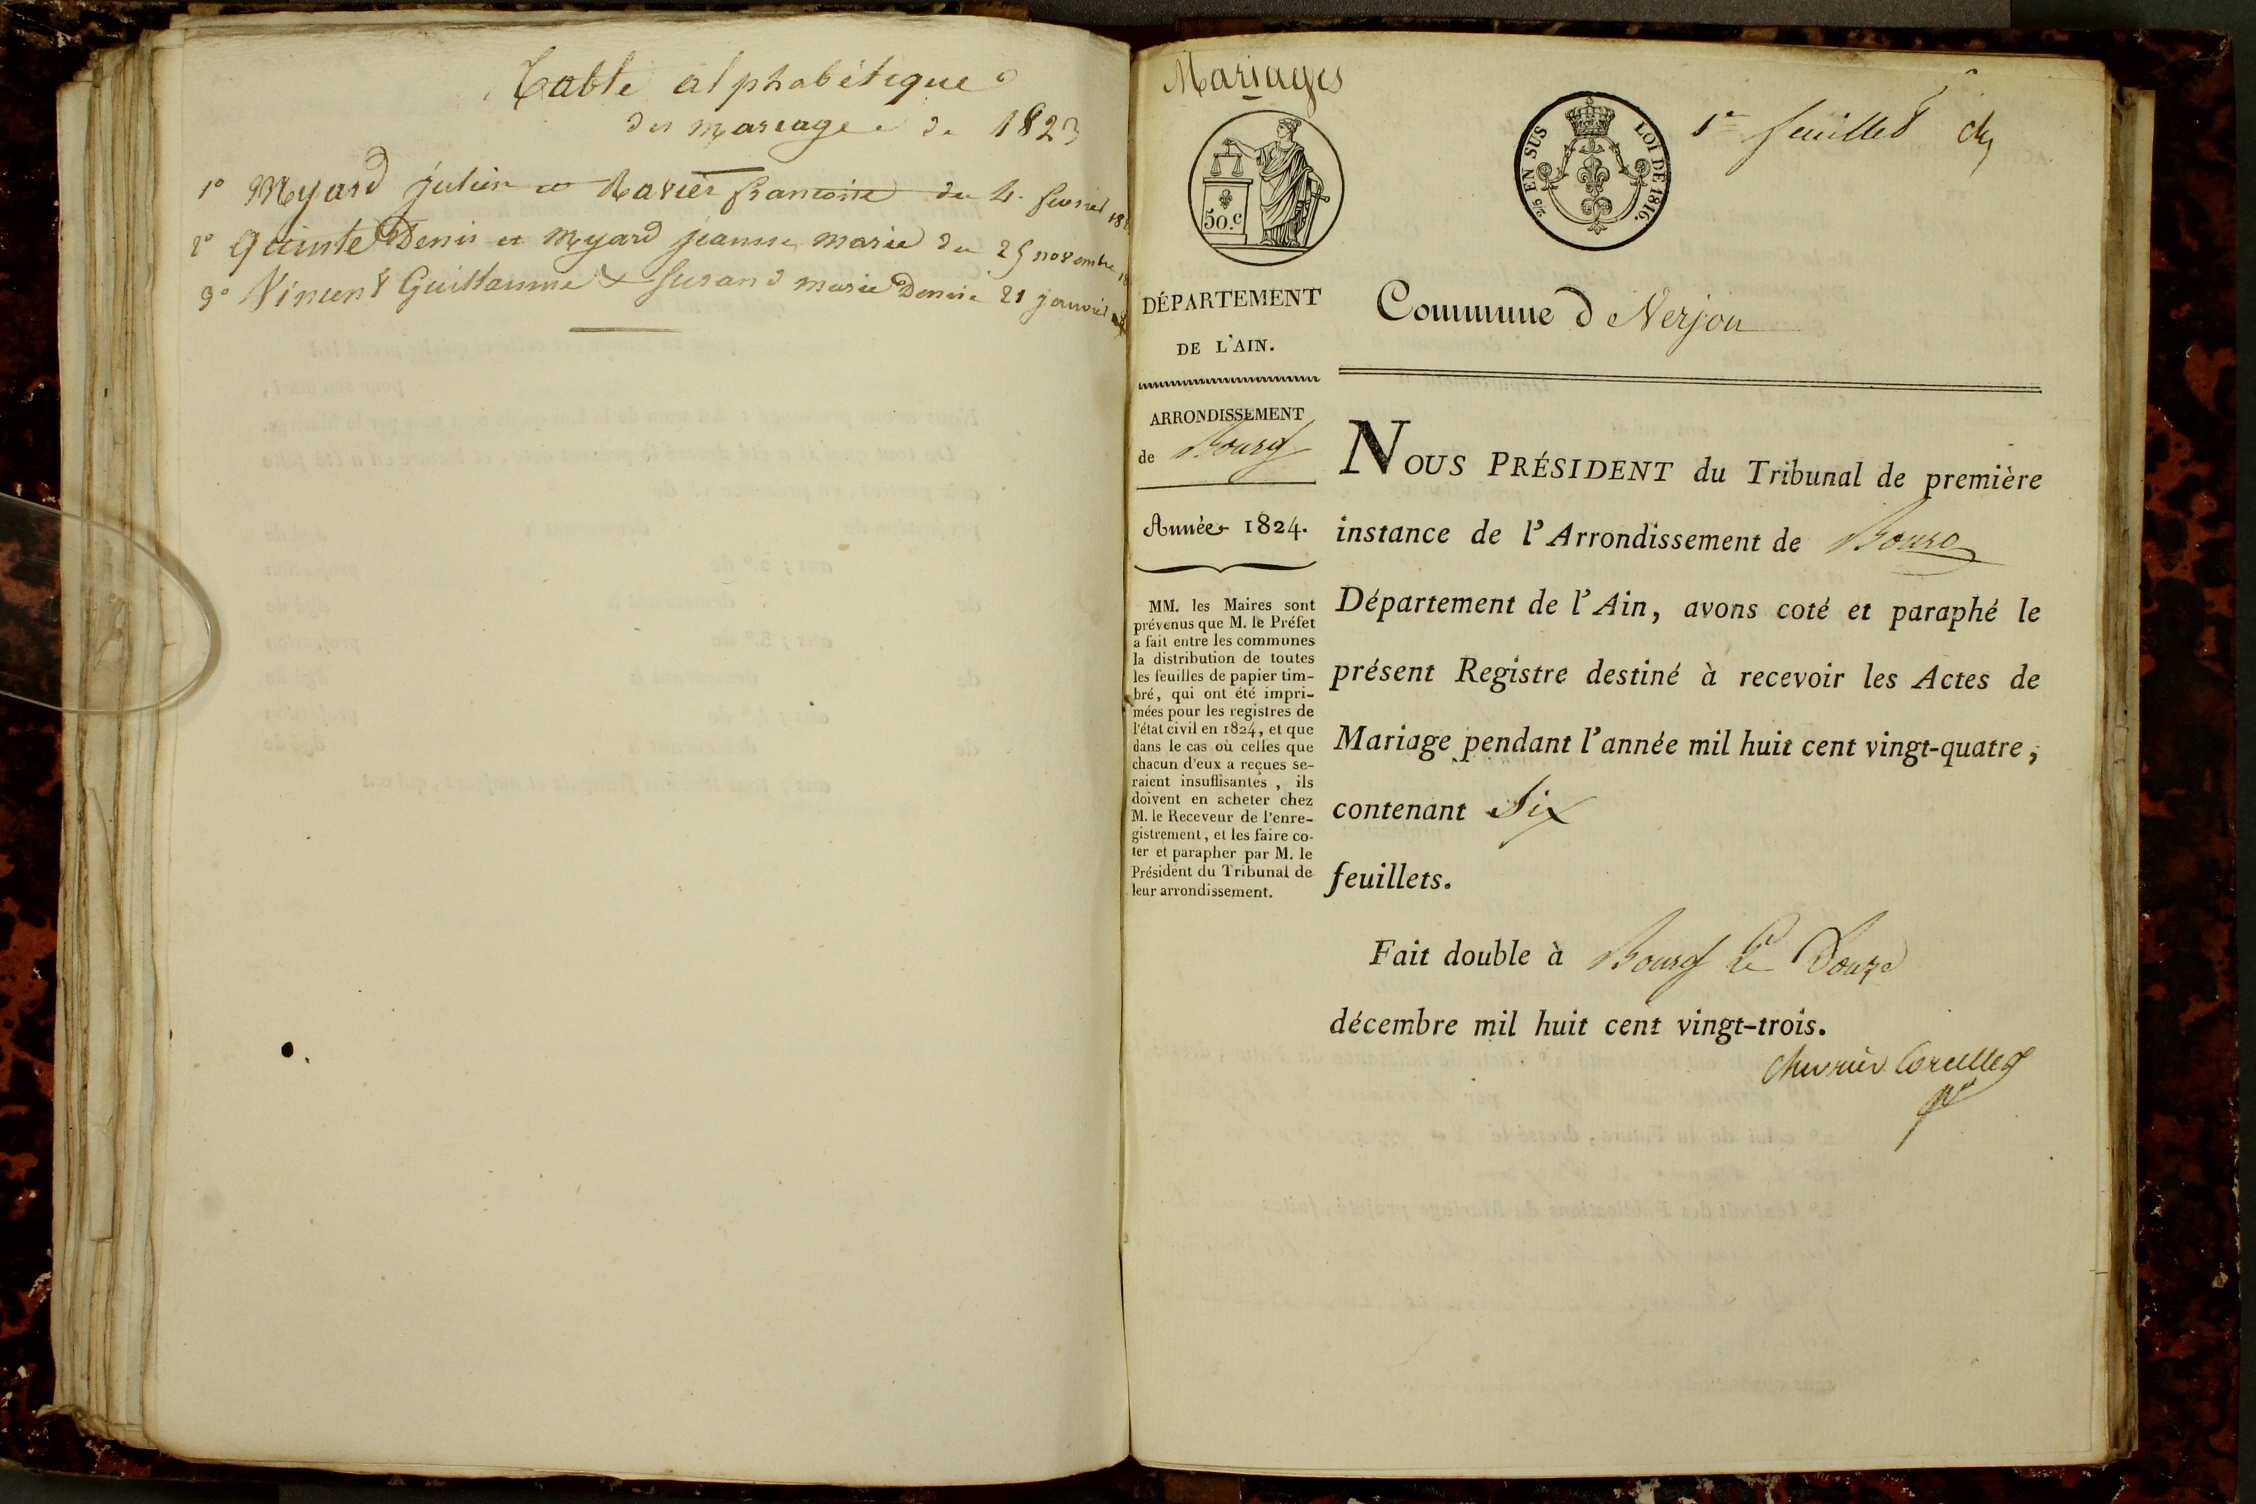 Table alphabétique
des mariages de 1823
1° Myard julien et Ravier francoise du 4 fevrier 18
2° Quinte Denis et Myard jeanne marie du 25 novembre 18
3° Vincent Guillaume & Surand marie Denise 21 janvier
Mariages
50.c
2/5 EN SUS LOI DE 1816.
1er feuillet
DÉPARTEMENT
DE L'AIN.
Commune d Verjon
ARRONDISSEMENT
de Bourg
Année 1824.
MM. les Maires sont
prévenus que M. le Préfet
a fait entre les communes
la distribution de toutes
les feuilles de papier tim-
bré, qui ont été impri-
mées pour les registres de
l'état civil en 1824, et que
dans le cas où celles que
chacun d'eux a reçues se-
raient insuffisantes, ils
doivent en acheter chez
M. le Receveur de l'enre-
gistrement, et les faire co-
ter et parapher par M. le
Président du Tribunal de
leur arrondissement.
NOUS PRÉSIDENT du Tribunal de première
instance de l'Arrondissement de Bourg
Département de l'Ain, avons coté et paraphé le
présent Registre destiné à recevoir les Actes de
Mariage pendant l'année mil huit cent vingt-quatre,
contenant Six
feuillets.
Fait double à Bourg le Douze
décembre mil huit cent vingt-trois.
Chevrier Corcelles